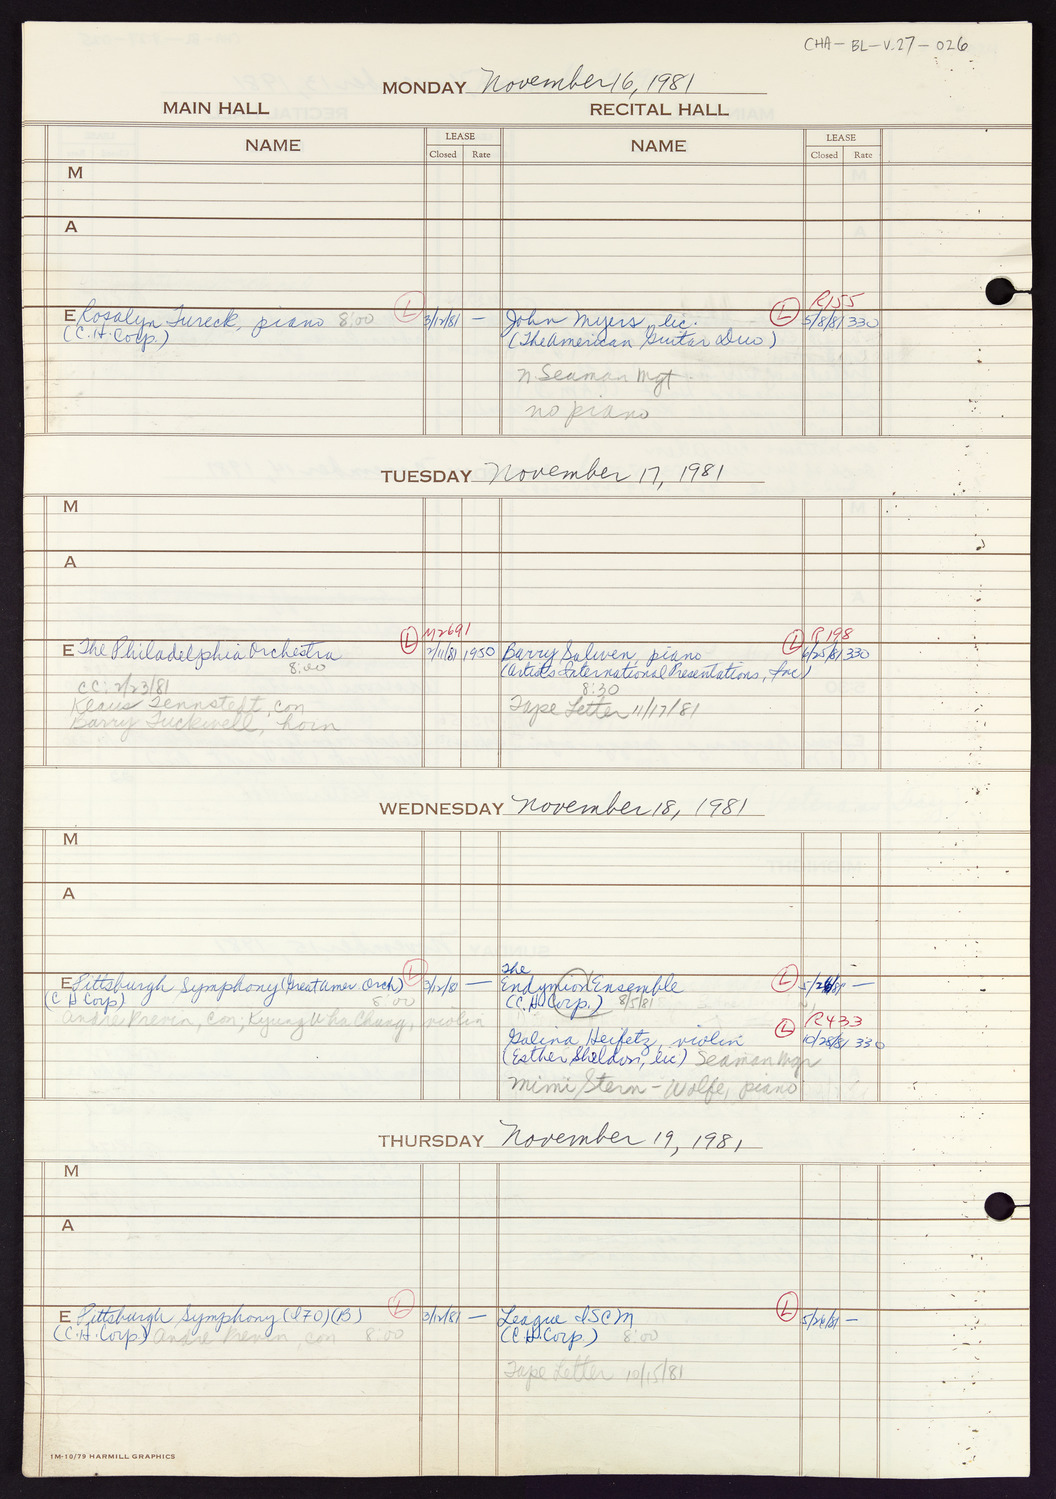 CHA-BL-V.27-026
MONDAY November 16, 1981
MAIN HALL RECITAL HALL
NAME LEASE NAME LEASE
Closed Rate Closed Rate
M
A
R155
E Rosalyn Tureck, piano 8:00 L 3/12/81 — John Myers, lic. L 5/8/81 330
(C.H. Corp.) (The American Guitar Duo)
N. Seaman Mgt.
no piano
TUESDAY November 17, 1981
M
A
M2691 R198
E The Philadelphia Orchestra L 2/11/81 1950 Barry Salwen, piano L 6/25/81 330
8:00 (Artists International Presentations, Inc)
cc: 2/23/81 8:30
Klaus Tennstedt, con Tape Letter 11/17/81
Barry Tuckwell, horn
WEDNESDAY November 18, 1981
M
A
The
E Pittsburgh Symphony (Great Amer Orch) L 3/12/81 — Endymion Ensemble L 5/26/81 —
(C H Corp) 8:00 (C.H. Corp.) 8/5/81
Andre Previn, con; Kyung Wha Chung, violin
R433
Galina Heifetz, violin L 10/28/81 330
(Esther Sheldon, lic) Seaman Mgr
Mimi Stern-Wolfe, piano
THURSDAY November 19, 1981
M
A
E Pittsburgh Symphony (I70)(B) L 3/12/81 — League ISCM L 5/26/81 —
(C.H. Corp) Andre Previn, con 8:00 (C.H. Corp.) 8:00
Tape Letter 10/15/81
1M-10/79 HARMILL GRAPHICS